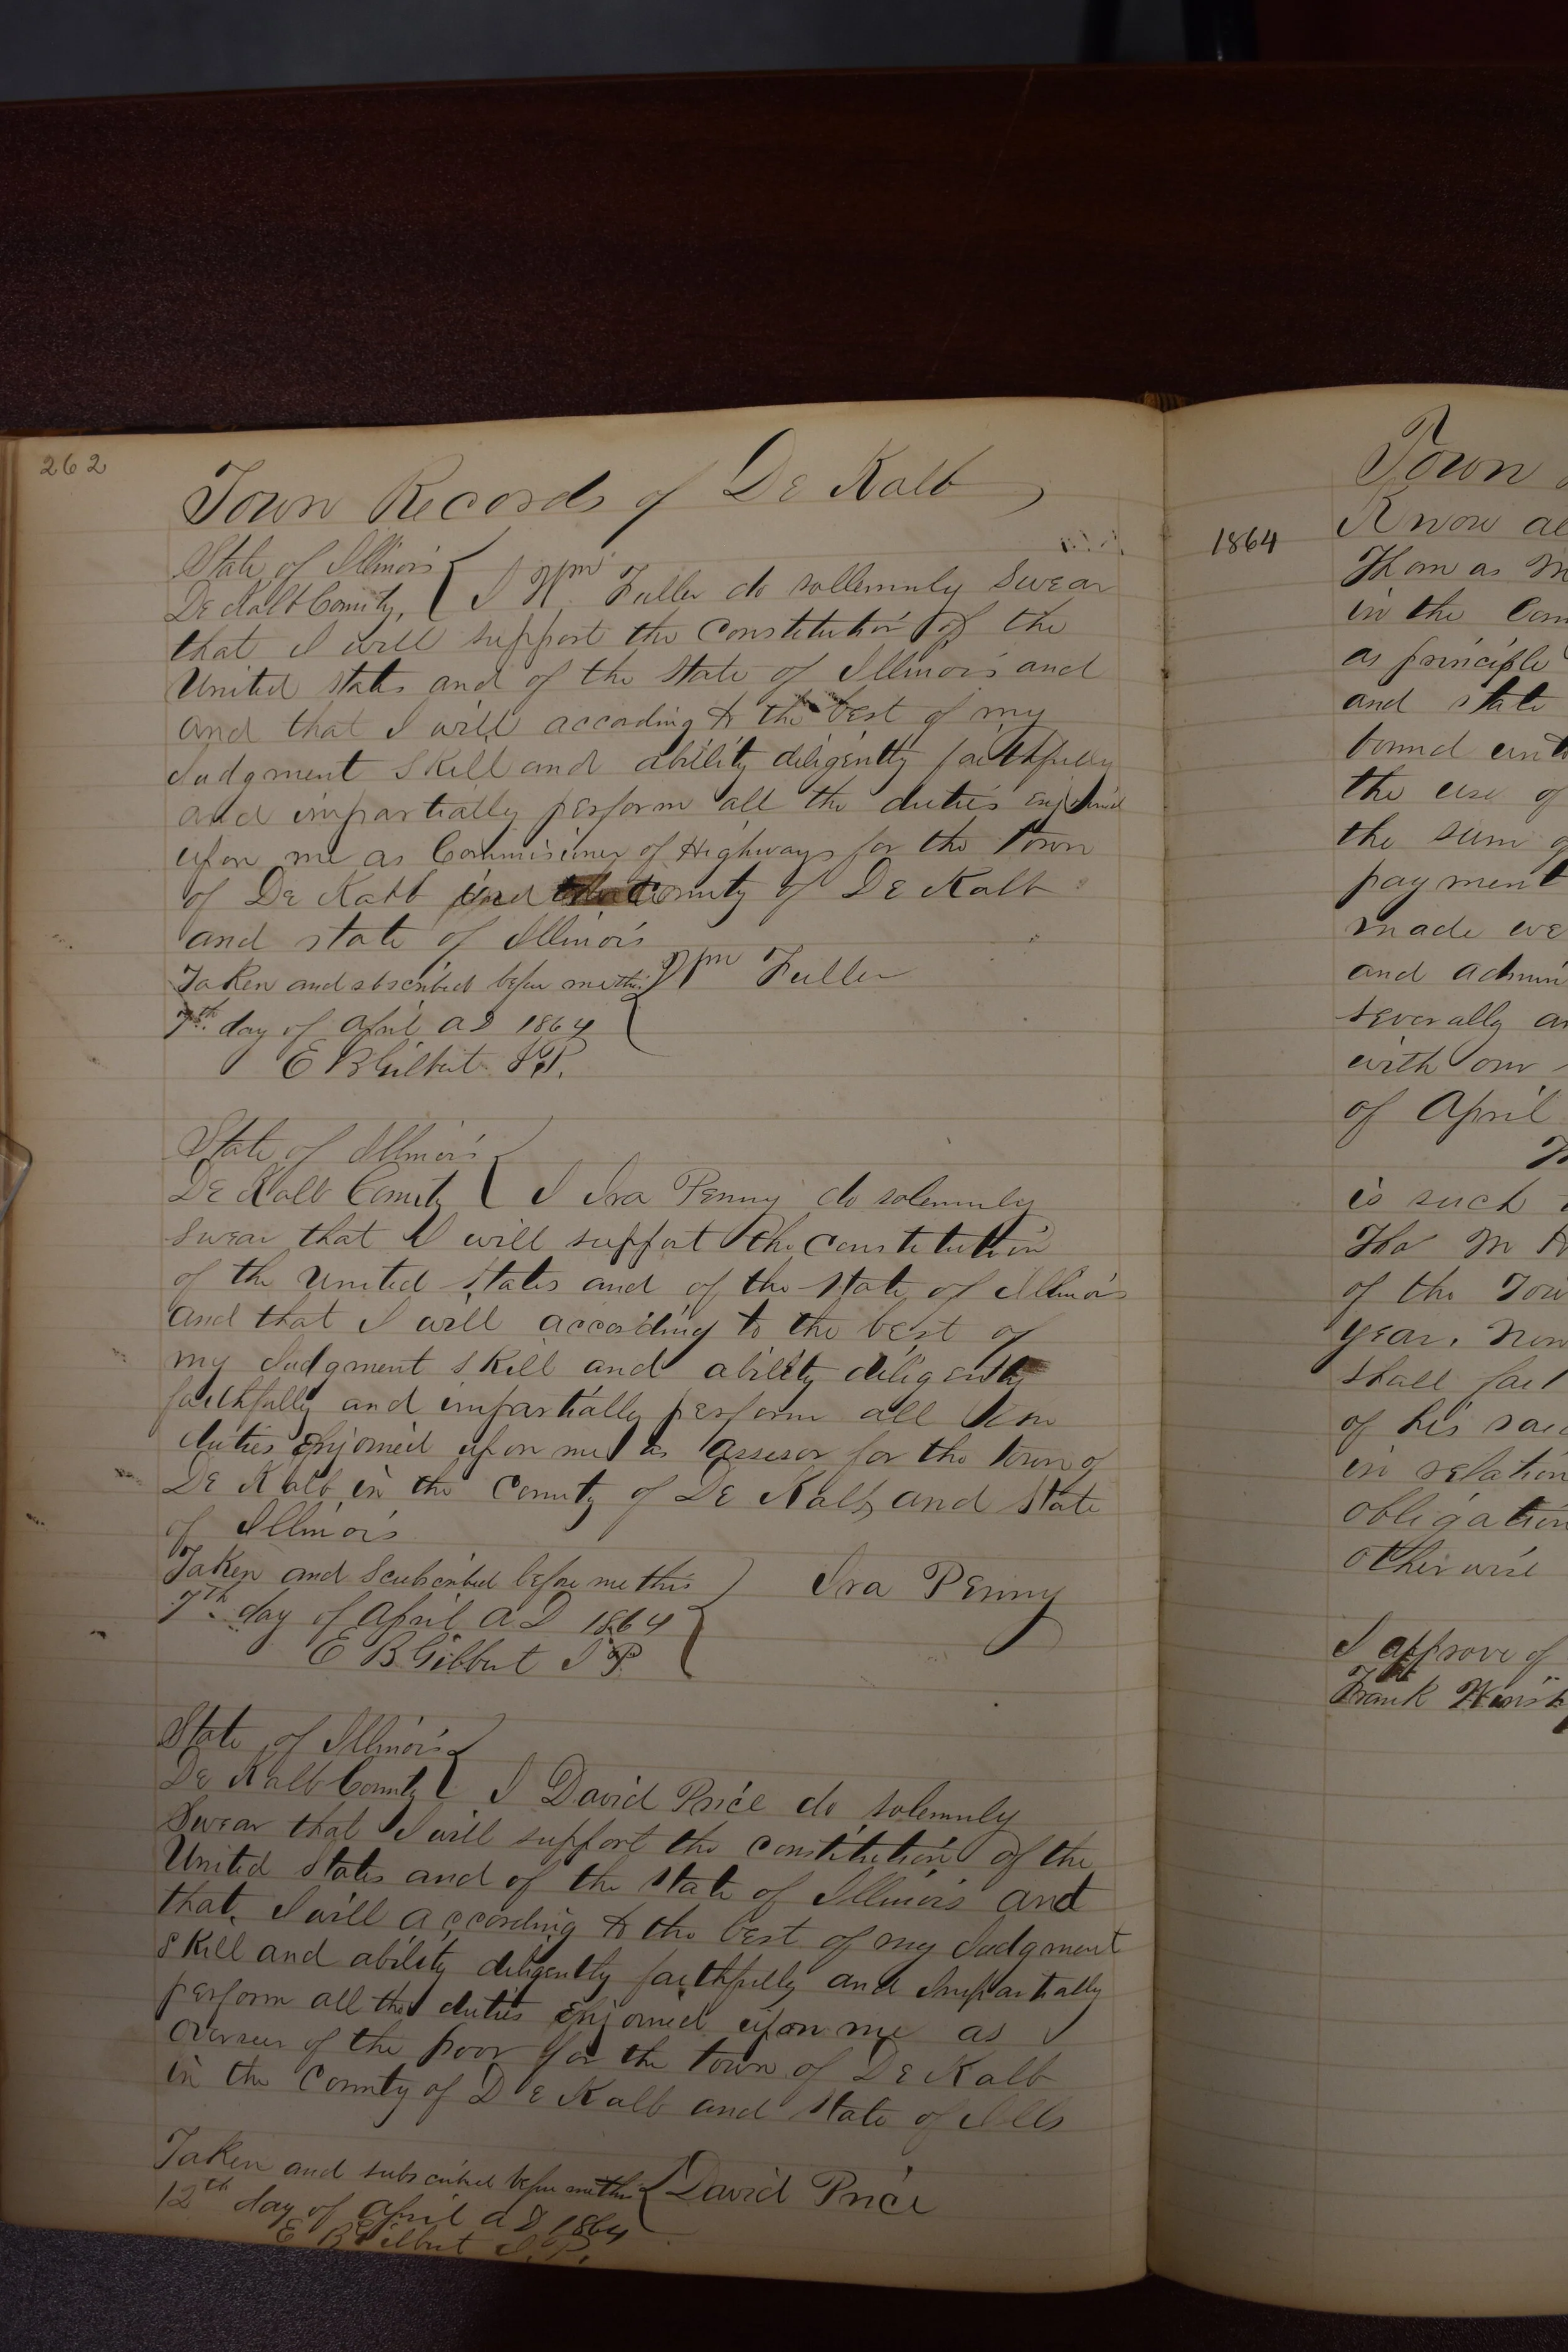 262
Town Records of De Kalb
State of Illinois
De Kalb County, I Wm Fuller do sollemnly Swear
that I will support the Constitution of the
United states and of the State of Illinois and
and that I will according to the best of my
Judgment Skill and ability diligently faithfully
and impartially perform all the duties enjoined
upon me as Commisioner of Highways for the Town
of De Kalb and the County of De Kalb
and state of Illinois
Taken and sbscribed before me this Wm Fuller
7th day of April AD 1864
E B Gilbert J.P.
State of Illinois
De Kalb County I Ira Penny do solemnly
Swear that I will support the Constitution
of the United States and of the State of Illinois
and that I will according to the best of
my Judgment skill and ability diligently
faithfully and impartially perform all the
duties Enjoined upon me as assesor for the town of
De Kalb in the County of De Kalb and State
of Illinois
Taken and Scubscribed before me this Ira Penny
7th day of April A D 1864
E B Gilbert J P.
State of Illinois
De Kalb County I David Price do solemnly
Swear that I will support the constitution of the
United States and of the State of Illinois and
that, I will according to the best of my Judgment
skill and ability diligently faithfully and Impartially
perform all the duties Enjoined upon me as
Overseer of the poor for the town of De Kalb
in the County of De Kalb and State of Ills
Taken and subscribed before me this David Price
12th day of April AD 1864
E B Gilbert J.P.
Town
1864
Know al
Thomas M
in the Coun
as principle
and state
bound unto
the use of
the sum of
payment
made we
and admin
severally an
with our
of April
is such
Tho M
of the Tow
year. Now
shall fail
of his said
in relation
obligation
otherwise
I approve of
Frank